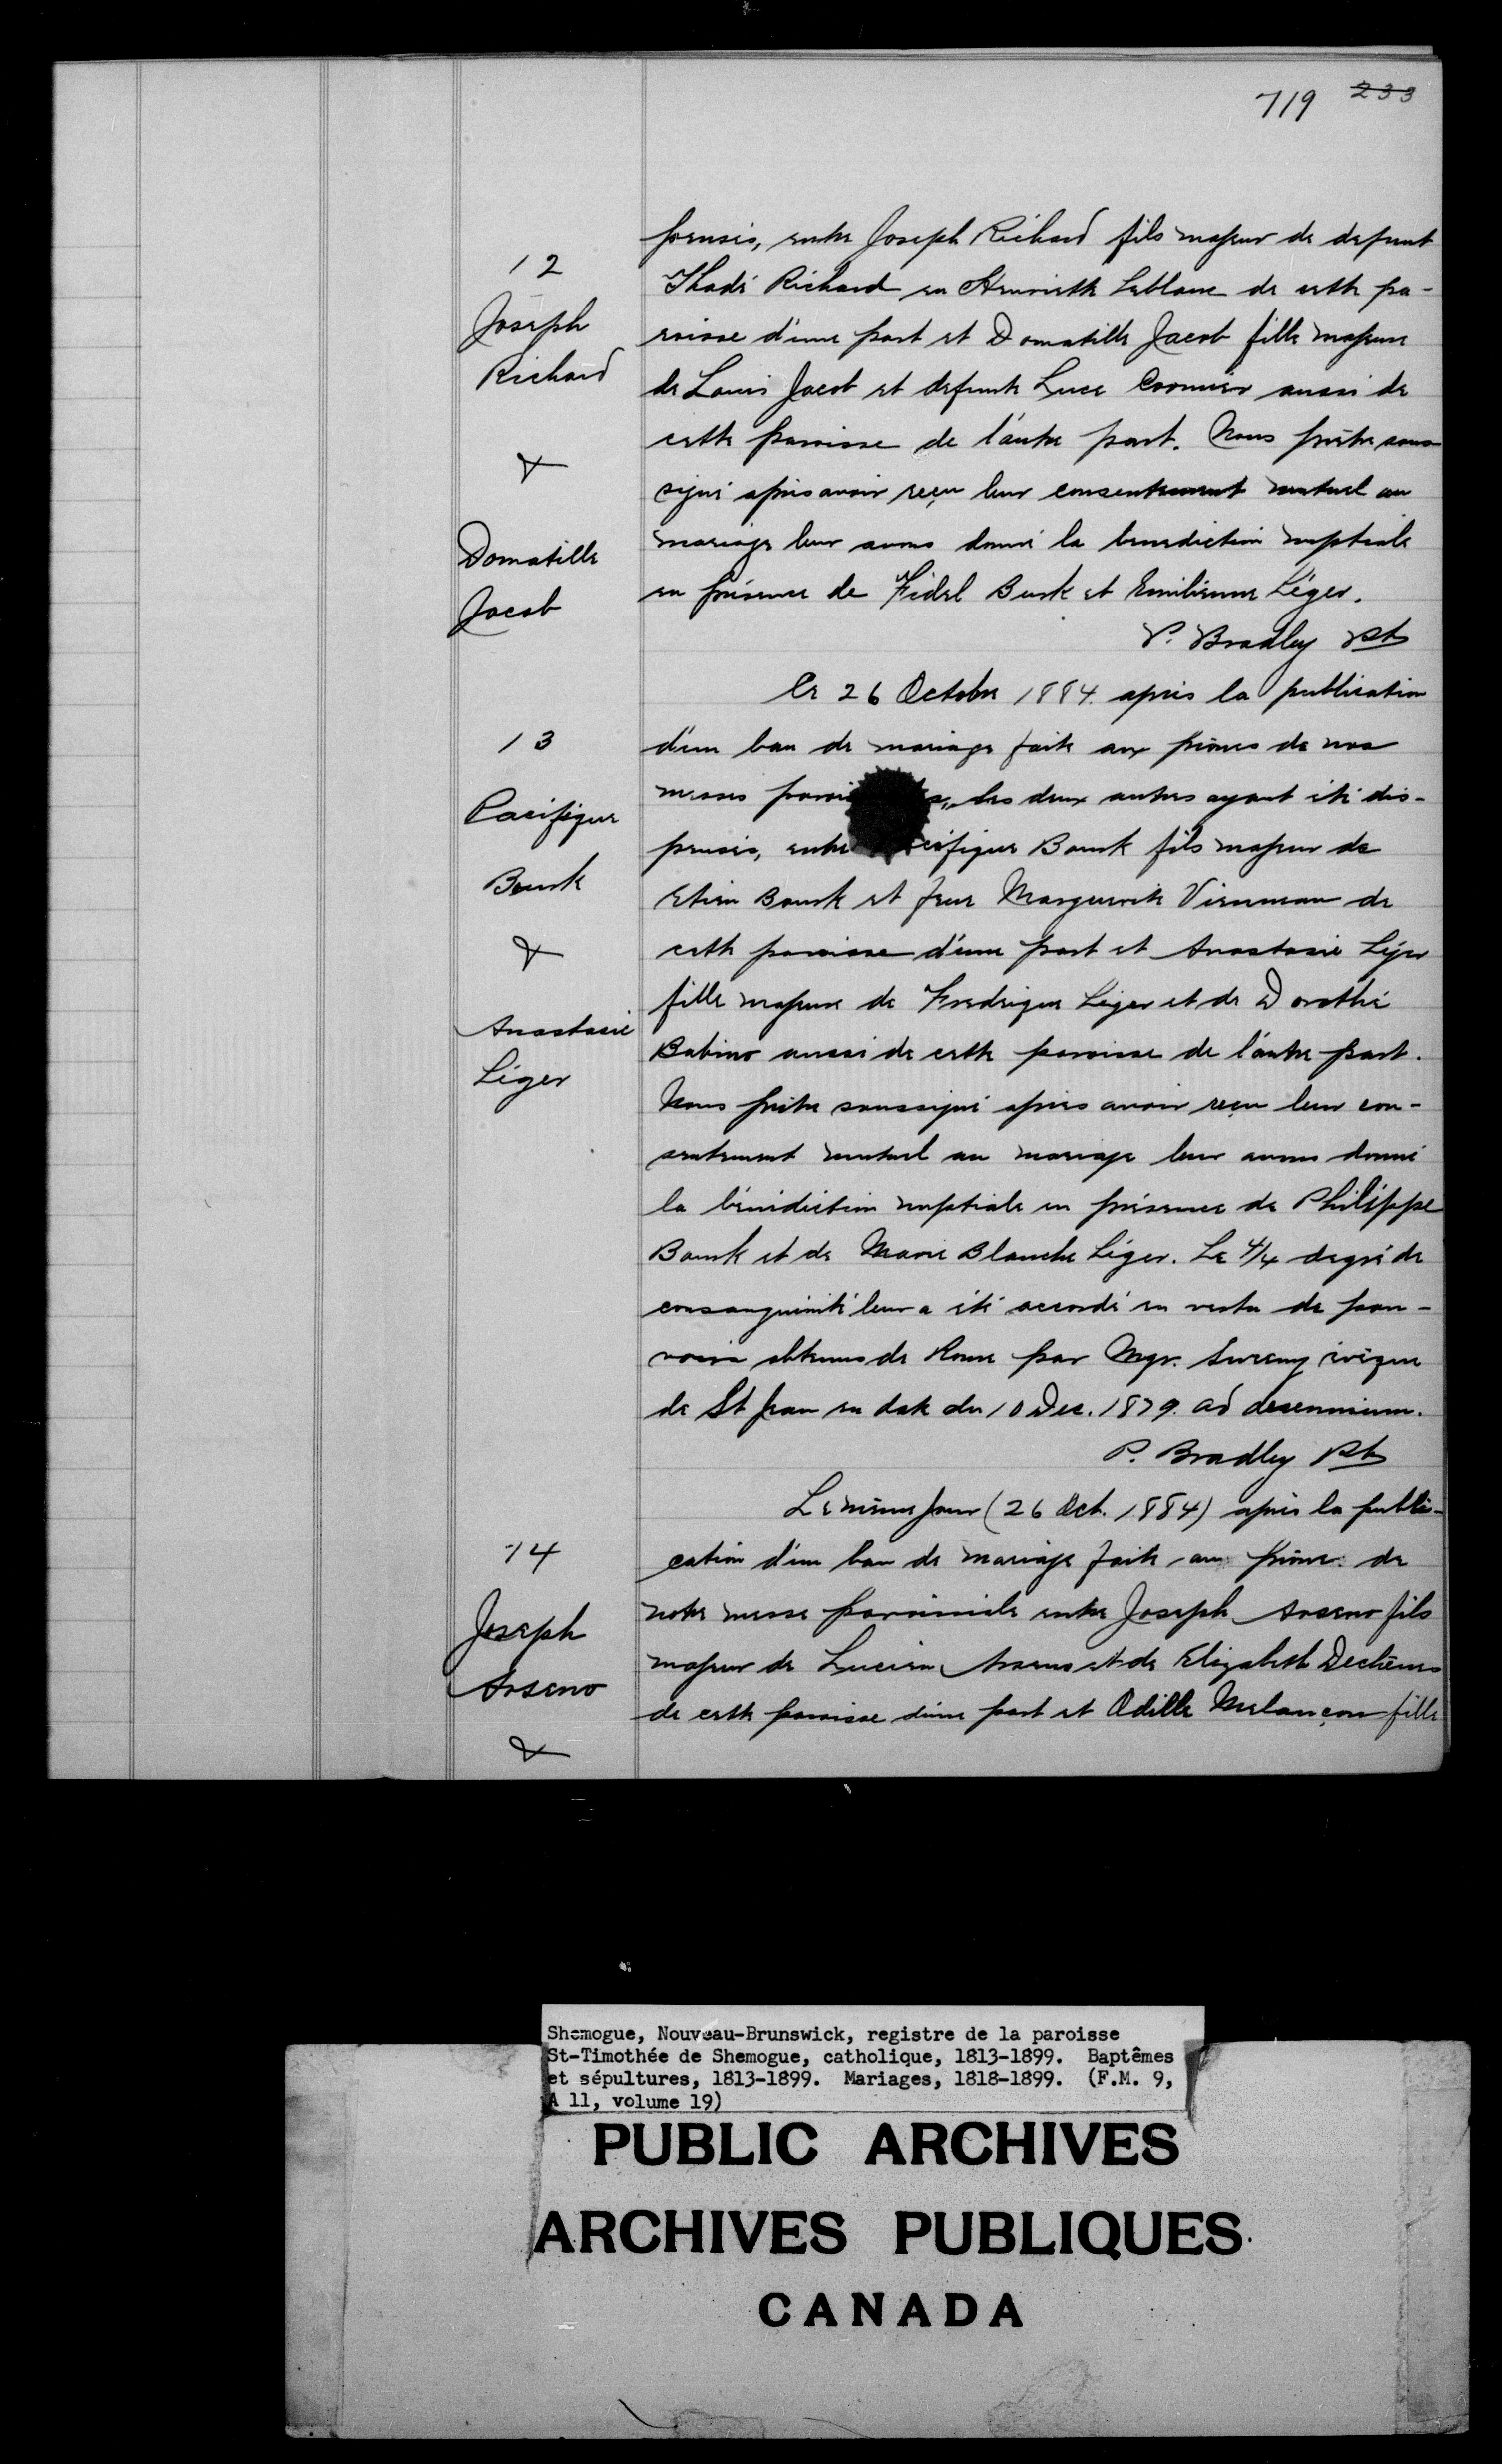 719 233
pensés, entre Joseph Richard fils majeur de defunt
12
Thadé Richard en Henriette Leblanc de cette pa-
Joseph
roisse d'une part et Domatille Jacob fille majeure
Richard
de Louis Jacob et defunte Luce Cormier aussi de
cette paroisse de l'autre part. Nous prêtre sous
&
signé après avoir reçu leur consentement mutuel au
Domatille
mariage leur avons donné la benediction nuptiale
Jacob
en présence de Fidel Burk et Emilienne Léger.
P. Bradley Pt
Ce 26 Octobre 1884. après la publication
13
d'un ban de mariage faite aux prônes de nos
Pacifique
messes les deux autres ayant été dis-
pensés, entre Bourk fils majeur de
Bourk
Etien Bourk et feue Marguerite Vienneau de
&
cette paroisse d'une part et Anastasie Léger
Anastasie
fille majeure de Fredrique Léger et de Dorothé
Léger
Babino aussi de cette paroisse de l'autre part.
Nous prêtre soussigné après avoir reçu leur con-
sentement mutuel au mariage leur avons donné
la bénédiction nuptiale en présence de Philippe
Bourk et de Marie Blanche Léger. Le 4/4 degré de
consanguinité leur a été accordé en vertu de pou-
voirs obtenus de Rome par Mgr. Sweeny évêque
de St Jean en date du 10 Dec. 1879. ad decennium.
P. Bradley Pt
Le même jour (26 Oct. 1884) après la publi-
14
cation d'un ban de mariage faite au prône de
Joseph
notre messe paroissiale entre Joseph Arseno fils
Arseno
majeur de Lucien Arseno et de Elizabeth Dechênes
de cette paroisse d'une part et Odille Melançon fille
&
Shemogue, Nouveau-Brunswick, registre de la paroisse
St-Timothée de Shemogue, catholique, 1813-1899. Baptêmes
et sépultures, 1813-1899. Mariages, 1818-1899. (F.M. 9,
A 11, volume 19)
PUBLIC ARCHIVES
ARCHIVES PUBLIQUES
CANADA